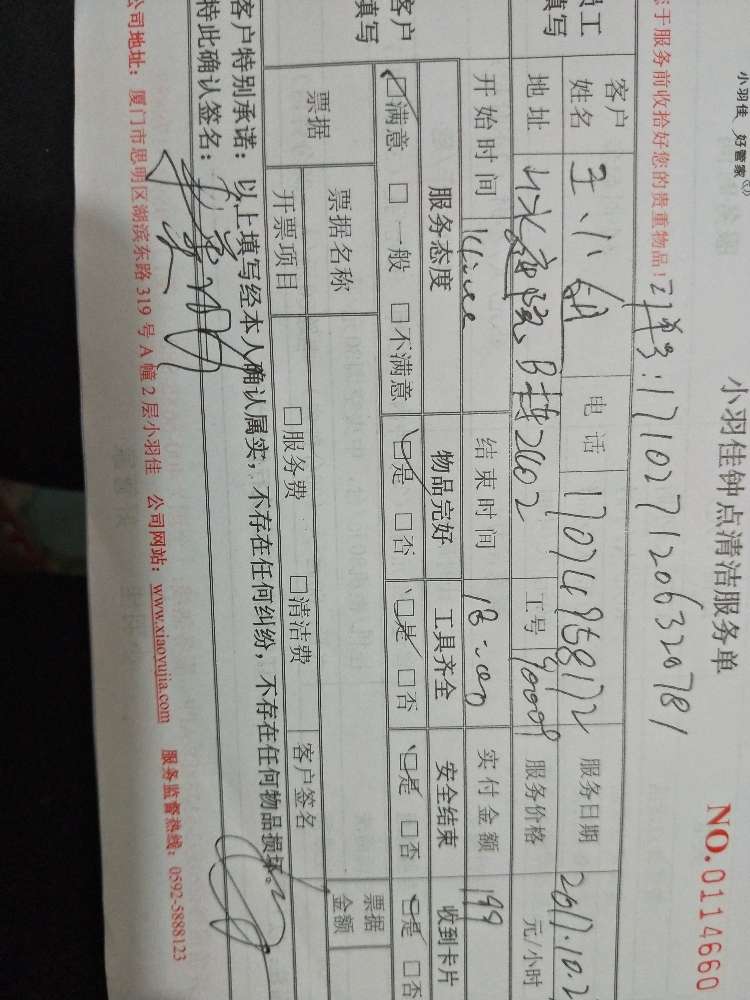 小羽佳 好管家
小羽佳钟点清洁服务单
NO.0114660
于服务前收拾好您的贵重物品!
1710271206320781
员工填写
客户姓名 王小 电话 服务日期 2017.10.2
地址 B栋2602 工号 90009 服务价格 元/小时
开始时间 结束时间 18:00 实付金额 199
客户填写
服务态度 物品完好 工具齐全 安全结束 收到卡片
☑满意 □一般 □不满意 ☑是 □否 ☑是 □否 ☑是 □否 ☑是 □否
票据 票据名称 票据金额
开票项目 □服务费 □清洁费 客户签名
客户特别承诺:以上填写经本人确认属实,不存在任何纠纷,不存在任何物品损坏。
特此确认签名:
公司地址:厦门市思明区湖滨东路319号A幢2层小羽佳 公司网站:www.xiaoyujia.com 服务监督热线:0592-5888123